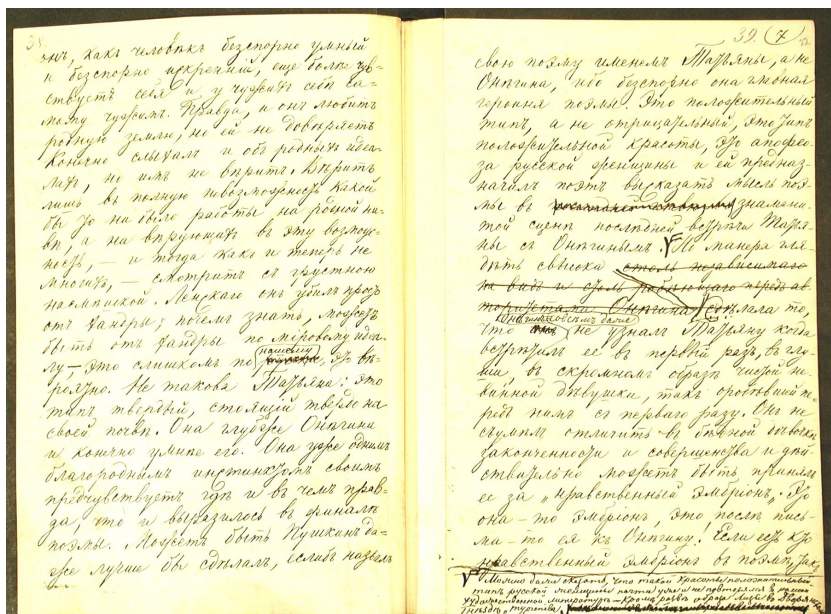 38.
онъ, какъ человѣкъ безспорно умный
и безспорно искренній, еще болѣе чув-
ствуетъ себя и у чужихъ себѣ са-
мому чужимъ. Правда, и онъ любитъ
родную землю, но ей не довѣряетъ
Конечно слыхалъ и объ родныхъ идеа-
лахъ, но имъ не вѣритъ. Вѣритъ
лишь въ полную невозможность какой
бы то ни было работы на родной ни-
вѣ, а на вѣрующихъ въ эту возмож-
ность, — и тогда какъ и теперь не
многихъ, — смотритъ съ грустною
насмѣшкой. Ленскаго онъ убилъ просто
отъ хандры; почемъ знать, можетъ
быть отъ хандры по міровому идеа-
лу — это слишкомъ по нашему, это вѣ-
роятно. Не такова Татьяна: это
типъ твердый, стоящій твердо на
своей почвѣ. Она глубже Онѣгина
и конечно умнѣе его. Она уже однимъ
благороднымъ инстинктомъ своимъ
предчувствуетъ гдѣ и въ чемъ прав-
да, что и выразилось въ финалѣ
поэмы. Можетъ быть Пушкинъ да-
же лучше бы сдѣлалъ, еслибъ назвалъ
39. (7)
свою поэму именемъ Татьяны, а не
Онѣгина, ибо безспорно она главная
героиня поэмы. Это положительный
типъ, а не отрицательный, это типъ
положительной красоты, это апофео-
за русской женщины и ей предназ-
начилъ поэтъ высказать мысль поэ-
мы въ знамени-
той сценѣ послѣдней встрѣчи Татья-
ны съ Онѣгинымъ. Но манера гля-
дѣть свысока столь независимаго
на видъ и столь раболѣпнаго передъ ав-
торитетами Онѣгина сдѣлала то,
что онъ не узналъ Татьяну когда
встрѣтилъ ее въ первый разъ, въ глу-
ши, въ скромномъ образѣ чистой не-
винной дѣвушки, такъ оробѣвшей пе-
редъ нимъ съ перваго разу. Онъ не
съумѣлъ отличить въ бѣдной дѣвочкѣ
законченности и совершенства и дѣй-
ствительно можетъ быть принялъ
ее за „нравственный эмбріонъ". Это
она-то эмбріонъ, это послѣ пись-
ма-то ея къ Онѣгину! Если есть кто
нравственный эмбріонъ въ поэмѣ, такъ
Можно даже сказать, что такой красоты положительный
типъ русской женщины почти уже и не повторялся въ нашей
художественной литературѣ — кромѣ развѣ образа Лизы въ Дворянскомъ
гнѣздѣ Тургенева.